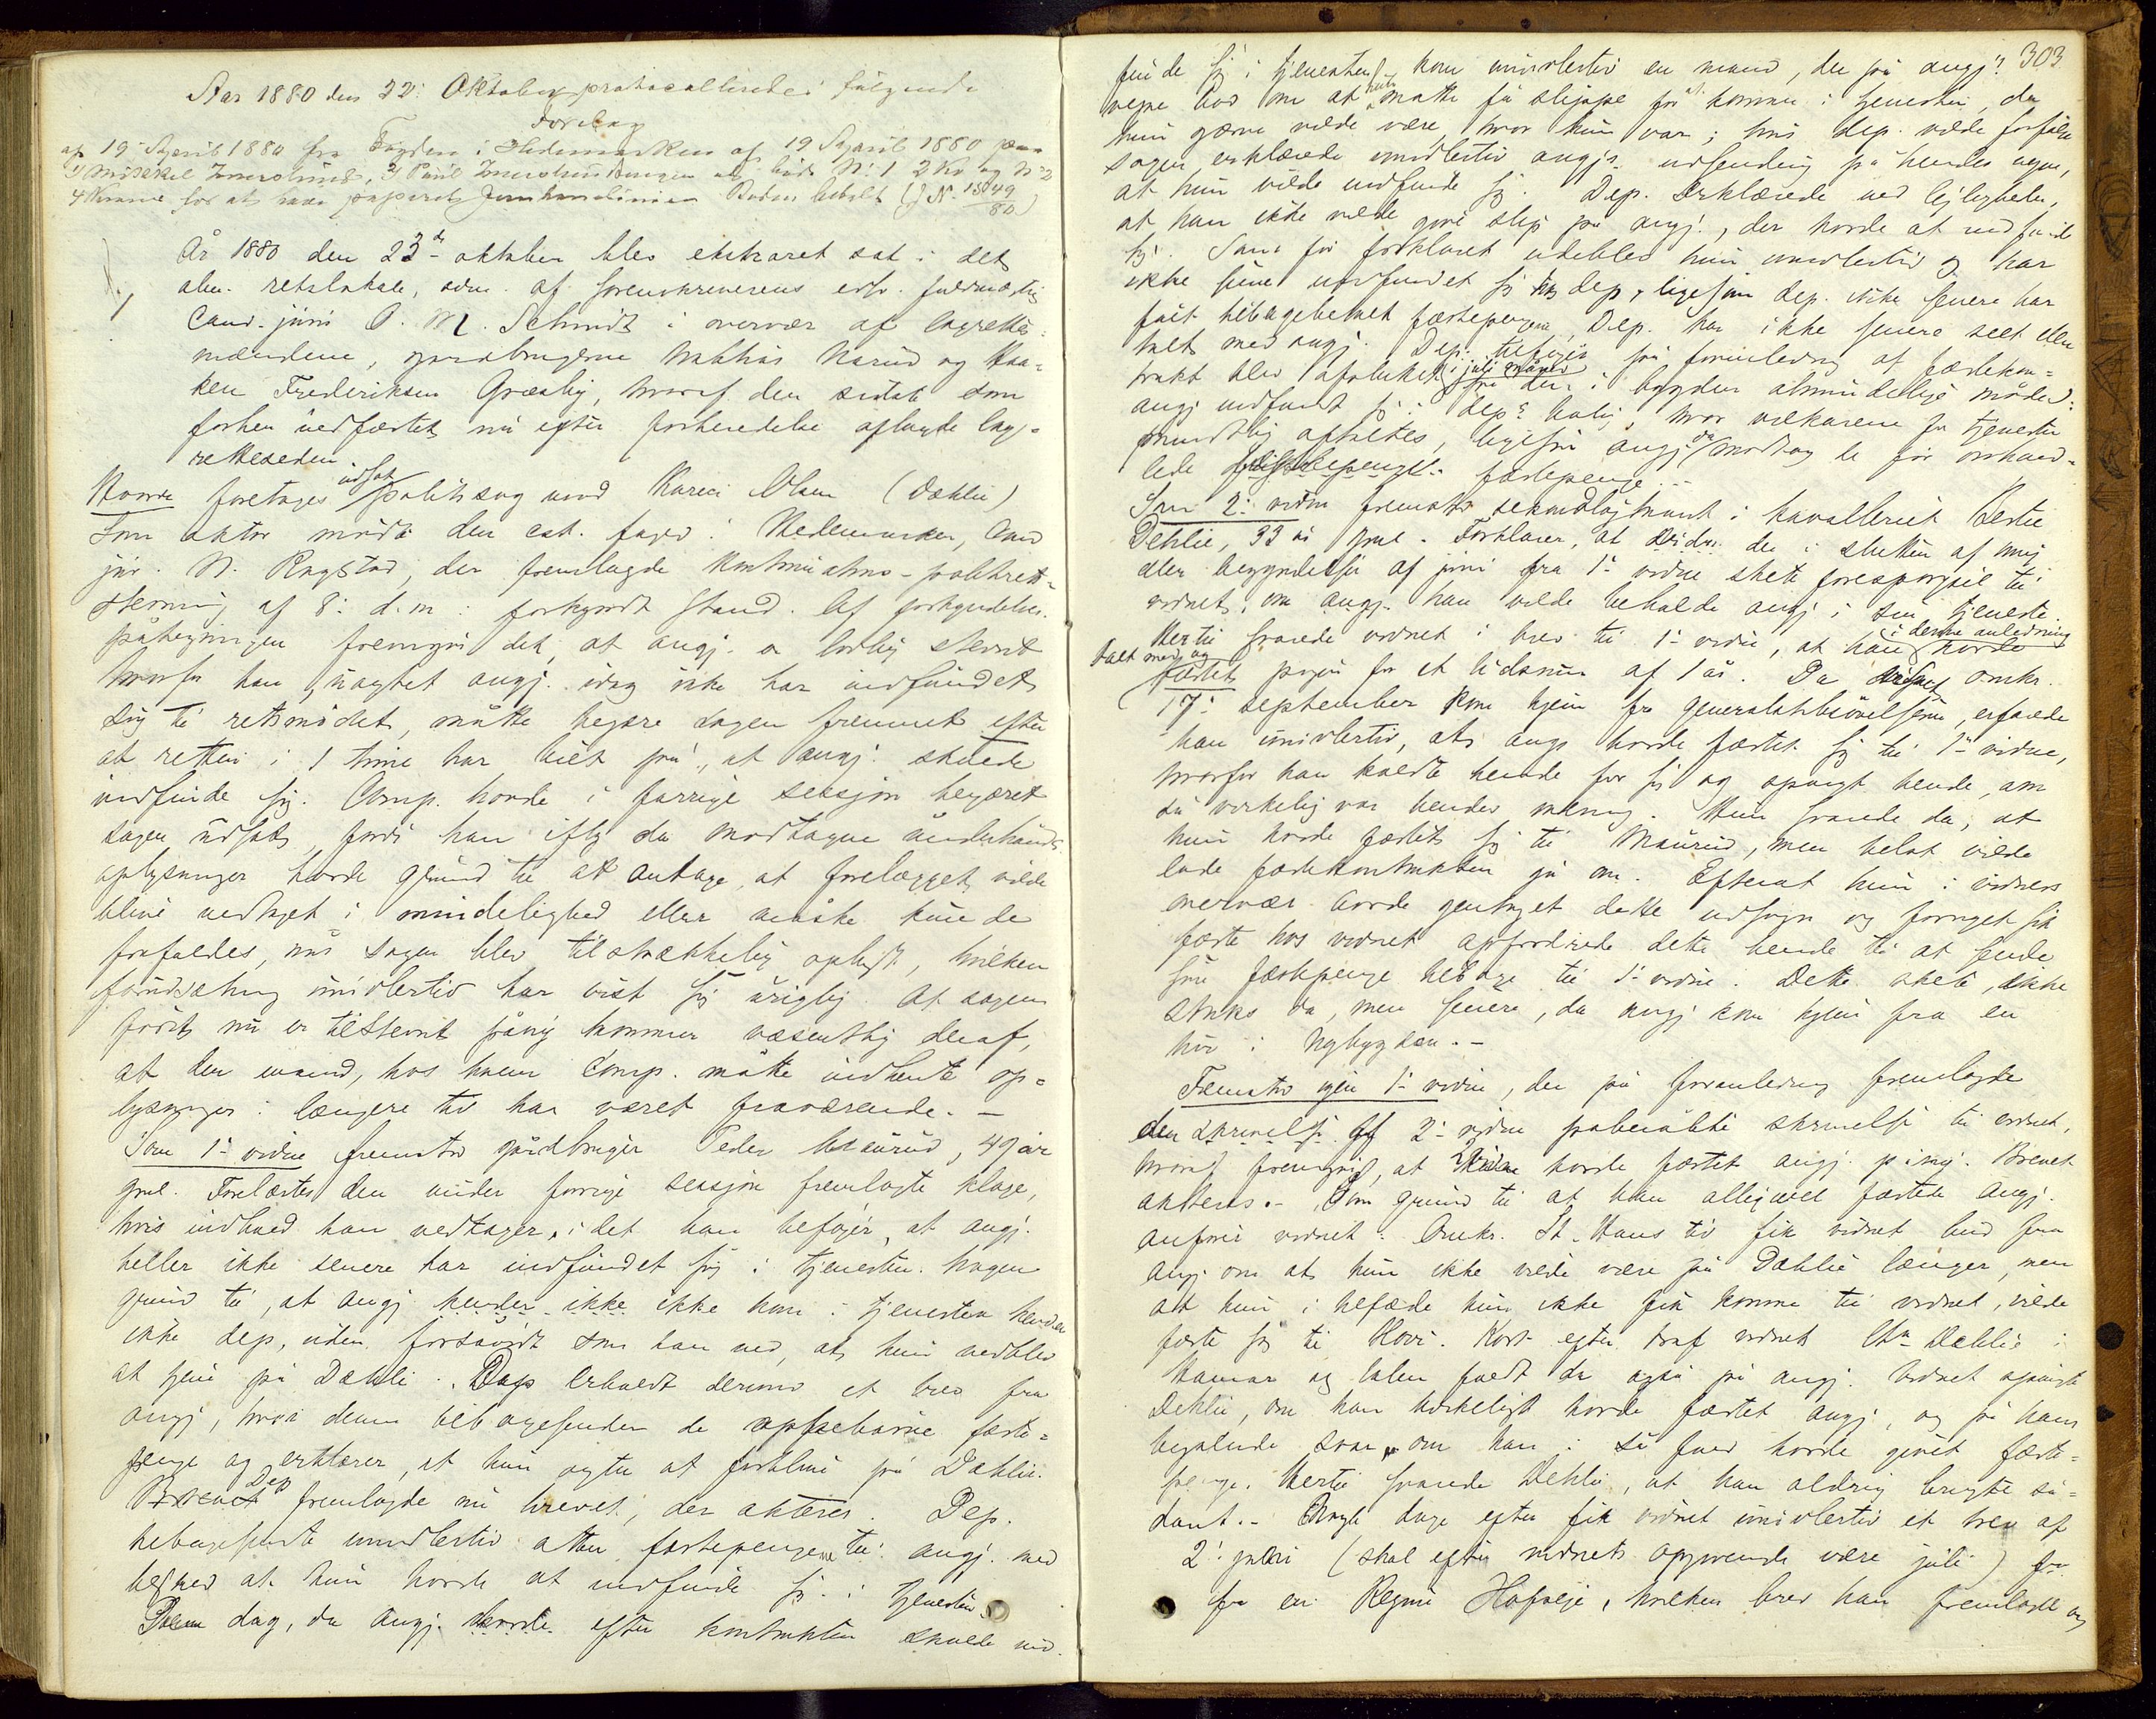 Aar 1880 den 22: Oktober protocolleredes følgende
Forelæg
af 19 April 1880 fra Fogden i Hedemarken af 19 April 1880 paa
4 Kroner for at have passeret Jernbanelinien Boden betalt (J N. 1549/80)
År 1880 den 23de oktober blev ekstraret sat i det
alm. retslokale, adm. af sorenskriverens edsv. fuldmægtig
Cand. juris O. M. Schmidt i overvær af lagrettes-
mændene, gårdbrugerne Mathias Narud og Haa-
ken Frederiksen Græsby, hvoraf den sidste som
forhen uedfæstet nu efter forberedelse aflagde lag-
retteseden.
Hvorda foretages udsat politisag mod Karen Olsen (Dæhlie)
Som aktor mødte den cst. foged i Hedemarken, Cand
jur. N. Ragstad, der fremlagde kontinuations-politiret-
stevning af 8: d.m. i forkyndt stand. Af forkyndelses-
påtegningen fremgår det, at angj. er lovlig stevnt
hvorfor han, uagtet angj. idag ikke har indfundet
sig til retsmødet, måtte begjære sagen fremmet efter
at retten i 1 time har biet på, at angj. skulde
indfinde sig. Comp. havde i forrige session begjæret
sagen udsat, fordi han iflg da modtagne underhånds
oplysninger havde grund til at antage, at forelægget vilde
blive vedtaget i mindelighed eller måske kunde
frafaldes, når sagen blev tilstrækkelig oplyst, hvilken
forudsætning imidlertid har vist sig urigtig. At sagen
først nu er tilstevnt påny kommer væsentlig deraf,
at den mand, hos hvem Comp. måtte indhente op-
lysninger i længere tid har været fraværende. —
Som 1ste vidne fremstod gårdbruger Peder Maurud, 49 år
gml. Forelæstes den under forrige session fremlagte klage,
hvis indhold han vedtager, i det han tilføjer, at angj.
heller ikke senere har indfundet sig i tjenesten. Nogen
grund til, at angj. kender ikke ikke kom i tjenesten kender
ikke dep., uden forsåvidt som han ved, at hun vedblev
at tjene på Dæhli. Dep erholdt derimod et brev fra
angj, hvori denne tilbagesender de oppebårne fæste-
penge og erklærer, at hun agter at forblive på Dæhlie.
Dep fremlagde nu brevet, der akteres. Dep.
tilbagesendte imidlertid atter fæstepengene til angj. med
besked at hun havde at indfinde sig i tjenesten.
Den dag, da angj. havde efter kontrakten skulde ind-
303
finde sig i tjenesten, kom imidlertid en mand, der på angjs
vegne bad om at hun måtte få slippe for at komme i tjenesten, da
hun gjærne vilde være, hvor hun var; hvis dep. vilde forfølge
sagen erklærede imidlertid angjs udsending på hendes vegne,
at hun vilde indfinde sig. Dep. erklærede ved lejligheden,
at han ikke vilde give slip på angj., der havde at indfinde
sig. Som før forklaret udeblev hun imidlertid og har
ikke siden indfundet sig hos dep, ligesom dep. ikke senere har
fået tilbagebetalt fæstepengene. Dep. har ikke senere seet eller
talt med angj. Dep. tilføjer på foranledning at fæstekon-
trakt blev afsluttet i juli måned på den i bygden almindelige måde:
angj indfandt sig i deps bolig, hvor vilkårene for tjenesten
mundtlig aftaltes, ligesom angj da modtog de før omhand-
lede fæstepenge ...
Som 2: vidne fremstod sekondløjtnant i kavalleriet Bertie
Dehlie, 33 år gml. Forklarer, at der i slutten af maj
eller begyndelsen af juni fra 1ste vidne skete forespørgsel til
vidnet, om angj. han vilde beholde angj i sin tjeneste.
Hertil svarede vidnet i brev til 1ste vidne, at han i denne anledning havde
talt med og
fæstet pigen for et tidsrum af 1 år. Da vidnet omkr.
17: september kom hjem fra generalstabsøvelserne, erfarede
han imidlertid, at angj. havde fæstet sig til 1ste vidne,
hvorfor han kaldte hende for sig og spurgt hende, om
så virkelig var hendes mening. Hun svarede da, at
hun havde fæstet sig til Maurud, men helst vilde
lade fæstekontrakten gå om. Efterat hun i vidnets
overvær havde gentaget dette udsagn og fornyet sit
fæste hos vidnet opfordrede dette hende til at sende
sine fæstepenge tilbage til 1ste vidne. Dette skete, ikke
straks da, men senere, da angj kom hjem fra en
tur i Nybygden. -
Fremstod igjen 1ste vidne, der på foranledning fremlagde
den skrivelse af 2det vidne påberåbte skrivelse til vidnet,
hvoraf fremgår, at vidne havde fæstet angj. på ny. Brevet
akteres. - Som grund til at han alligevel fæstede angj.
anfører vidnet: Omkr. St. Hans tid fik vidnet bud fra
angj. om at hun ikke vilde være på Dæhlie længer, men
at hun i tilfælde hun ikke fik komme til vidnet, vilde
fæste sig til Hovi. Kort efter traf vidnet Lt. Dæhlie i
Hamar og talen faldt da også på angj. Vidnet spurgte
Dehlie, om han virkeligt havde fæstet angj, og på hans
bejaende svar, om han i så fald havde givet fæste-
penge. Hertil svarede Dehlie, at han aldrig brugte så-
dant. - Nogle dage efter fik vidnet imidlertid et brev af
2: juni (skal efter vidnets opgivende være juli) fra
fra en Regine Hofseje, hvilken brev han fremlagde og